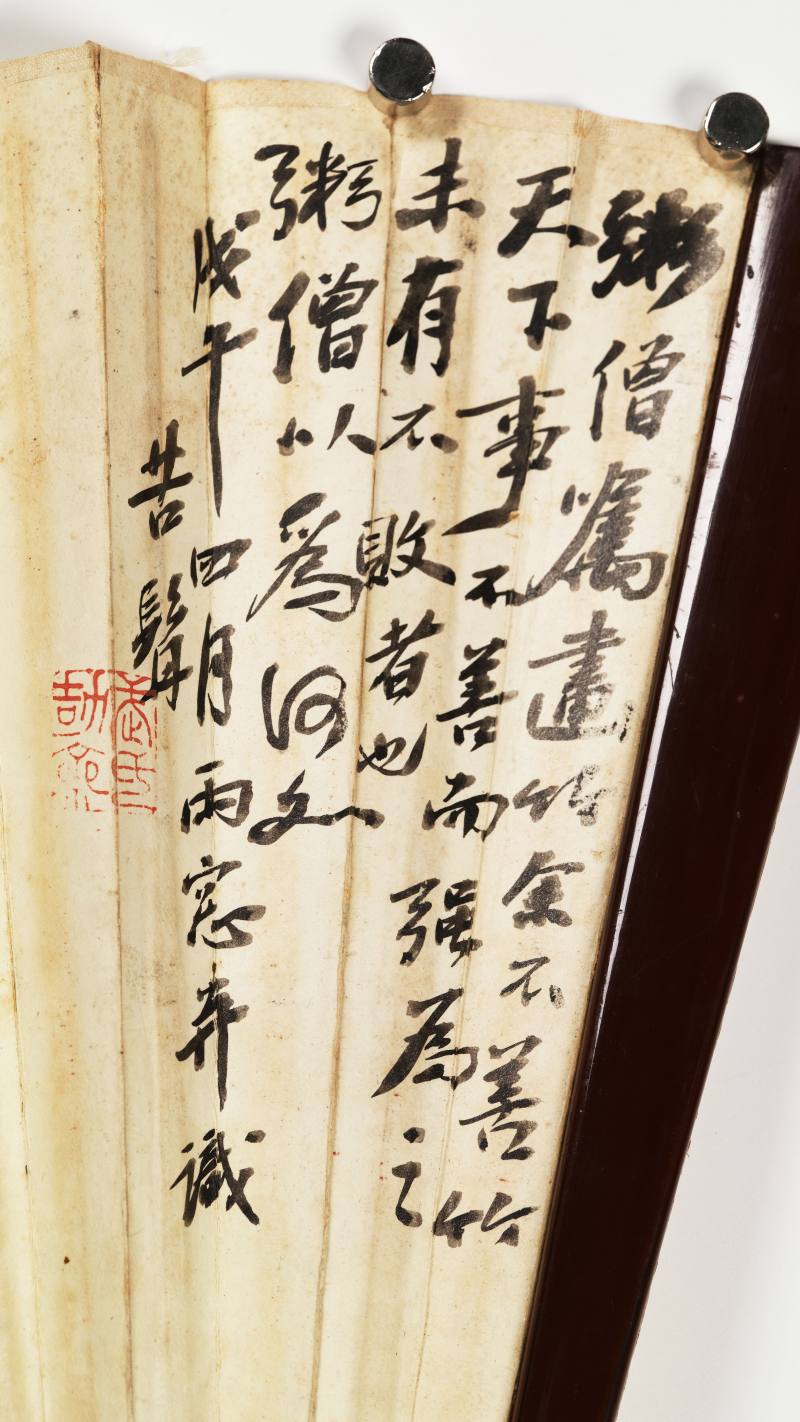 粥僧嘱畫竹余不善竹
天下事不善而强為之
未有不敗者也
粥僧以為何如
戊午四月雨窓并識
苦髯